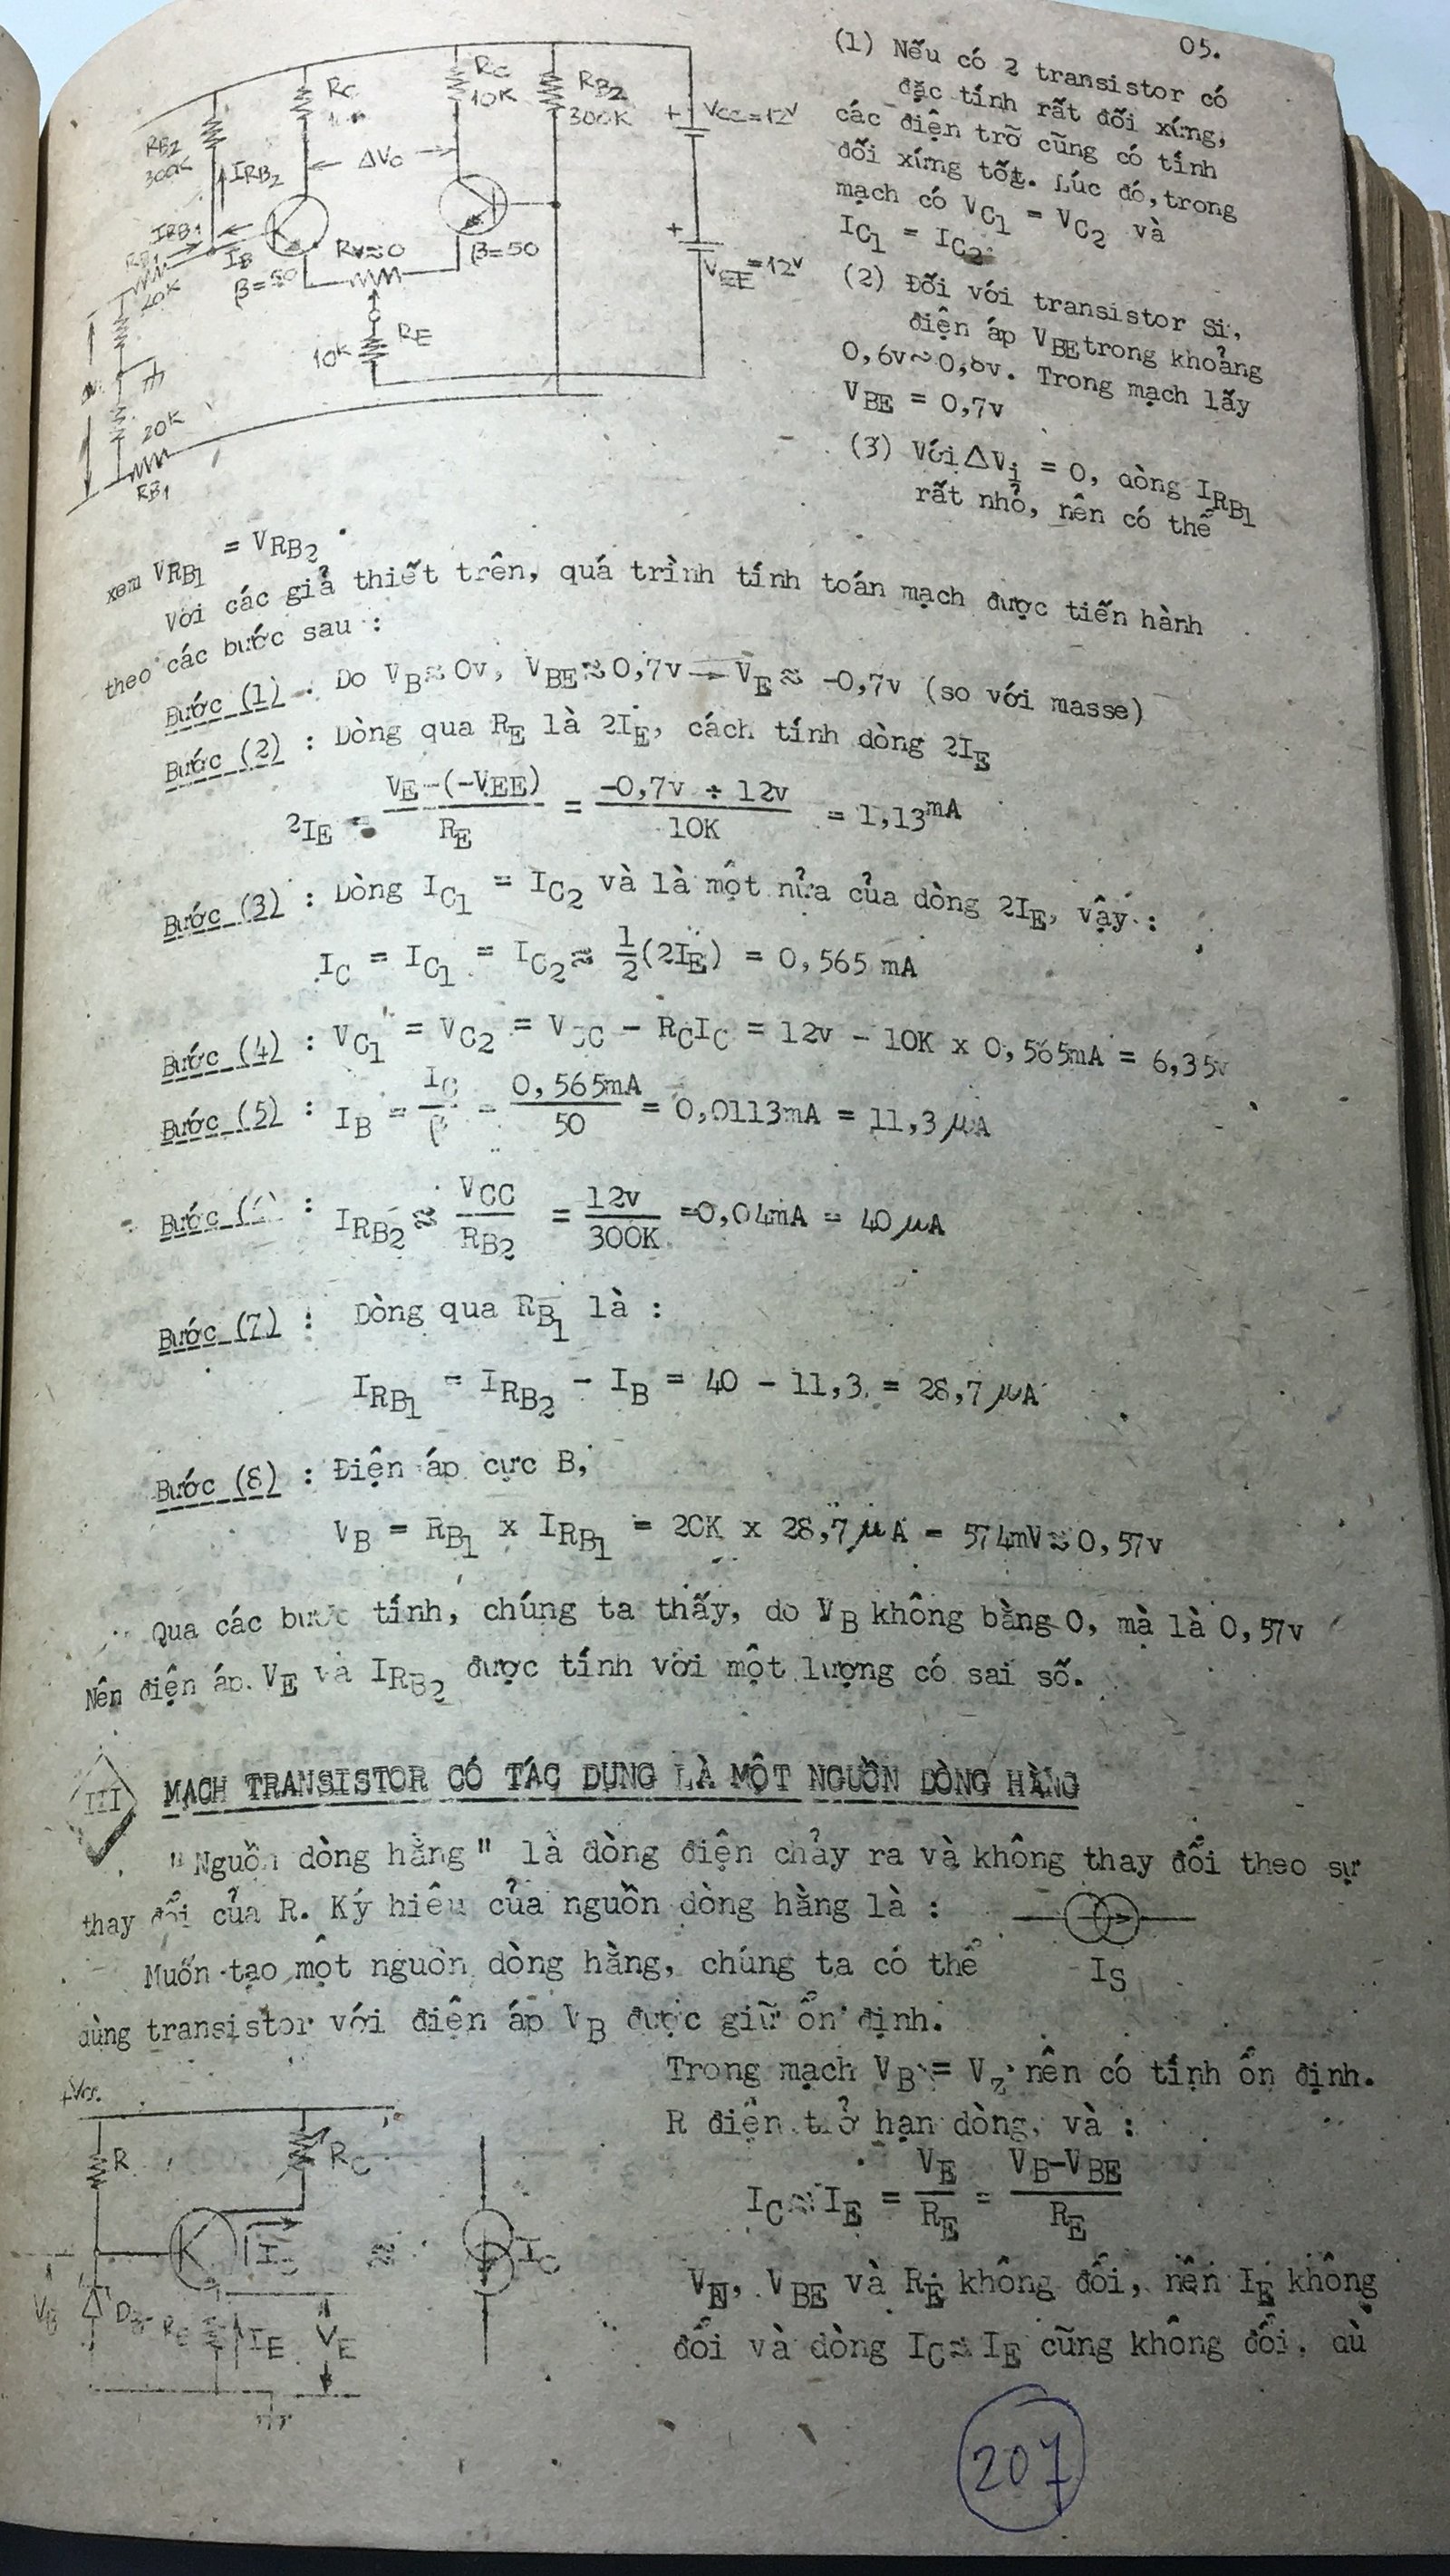 05.
RC
10K
RC
10K
RB2
300K
VCC=12V
RB2
300K
IRB2
ΔVC
IRB1
IB
RB1
20K
β=50
RV≈0
β=50
VEE=12V
10K
RE
20K
RB1
(1) Nếu có 2 transistor có
đặc tính rất đối xứng,
các điện trỡ cũng có tính
đối xứng tốt. Lúc đó, trong
mạch có VC1 = VC2 và
IC1 = IC2.
(2) Đối với transistor Si,
điện áp VBE trong khoảng
0,6v~0,8v. Trong mạch lấy
VBE = 0,7v
(3) Với ΔVi = 0, dòng IRB1
rất nhỏ, nên có thể
xem VRB1 = VRB2.
Với các giả thiết trên, quá trình tính toán mạch được tiến hành
theo các bước sau :
Bước (1) : Do VB≈ 0v, VBE≈0,7v → VE≈ -0,7v (so với masse)
Bước (2) : Dòng qua RE là 2IE, cách tính dòng 2IE
2IE = VE-(-VEE) / RE = -0,7v + 12v / 10K = 1,13mA
Bước (3) : Dòng IC1 = IC2 và là một nửa của dòng 2IE, vậy :
IC = IC1 = IC2≈ 1/2(2IE) = 0,565 mA
Bước (4) : VC1 = VC2 = VCC - RCIC = 12v - 10K x 0,565mA = 6,35v
Bước (5) : IB = IC / β = 0,565mA / 50 = 0,0113mA = 11,3 μA
Bước : IRB2≈ VCC / RB2 = 12v / 300K =0,04mA = 40 μA
Bước (7) : Dòng qua RB1 là :
IRB1 = IRB2 - IB = 40 - 11,3 = 28,7 μA
Bước (8) : Điện áp cực B,
VB = RB1 x IRB1 = 20K x 28,7 μA = 574mV≈0,57v
Qua các bước tính, chúng ta thấy, do VB không bằng 0, mà là 0,57v
Nên điện áp VE và IRB2 được tính với một lượng có sai số.
III MẠCH TRANSISTOR CÓ TÁC DỤNG LÀ MỘT NGUỒN DÒNG HẰNG
"Nguồn dòng hằng" là dòng điện chảy ra và không thay đổi theo sự
thay đổi của R. Ký hiệu của nguồn dòng hằng là :
IS
Muốn tạo một nguồn dòng hằng, chúng ta có thể
dùng transistor với điện áp VB được giữ ổn định.
Trong mạch VB = Vz nên có tính ổn định.
R điện trở hạn dòng, và :
IC≈ IE = VE / RE = VB-VBE / RE
VE, VBE và RE không đổi, nên IE không
đổi và dòng IC≈ IE cũng không đổi, dù
+Vcc
R
RC
≈
IC
VB
DZ
RE
IE
VE
207